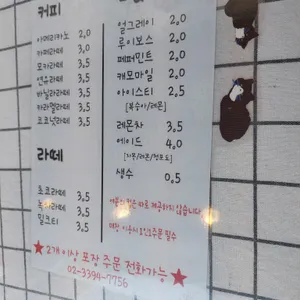 커피
아메리카노 2.0
카페라떼 3.0
모카라떼 3.5
연유라떼 3.5
바닐라라떼 3.5
카라멜라떼 3.5
코코넛라떼 3.5
라떼
초코라떼 3.5
녹차라떼 3.5
밀크티 3.5
얼그레이 2.0
루이보스 2.0
페퍼민트 2.0
캐모마일 2.0
아이스티 2.5
[복숭아/레몬]
레몬차 3.5
에이드 4.0
[자몽/레몬/청포도]
생수 0.5
따로 제공하지 않습니다
매장 이용시 1인1주문 필수
★ 2개이상 포장 주문 전화가능 ★
02-3394-7756